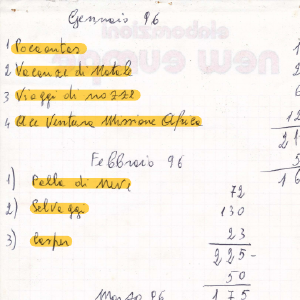 Gennaio 96
1 Pocaontas
2 Vacanze di Natale
3 Viaggi di nozze
4 Ace Ventura Missione Africa 12
21
5
16
Febbraio 96
1) Palla di Neve 72
2) Selvaggi 130
3) Casper 23
225-
50
Marzo 96 175